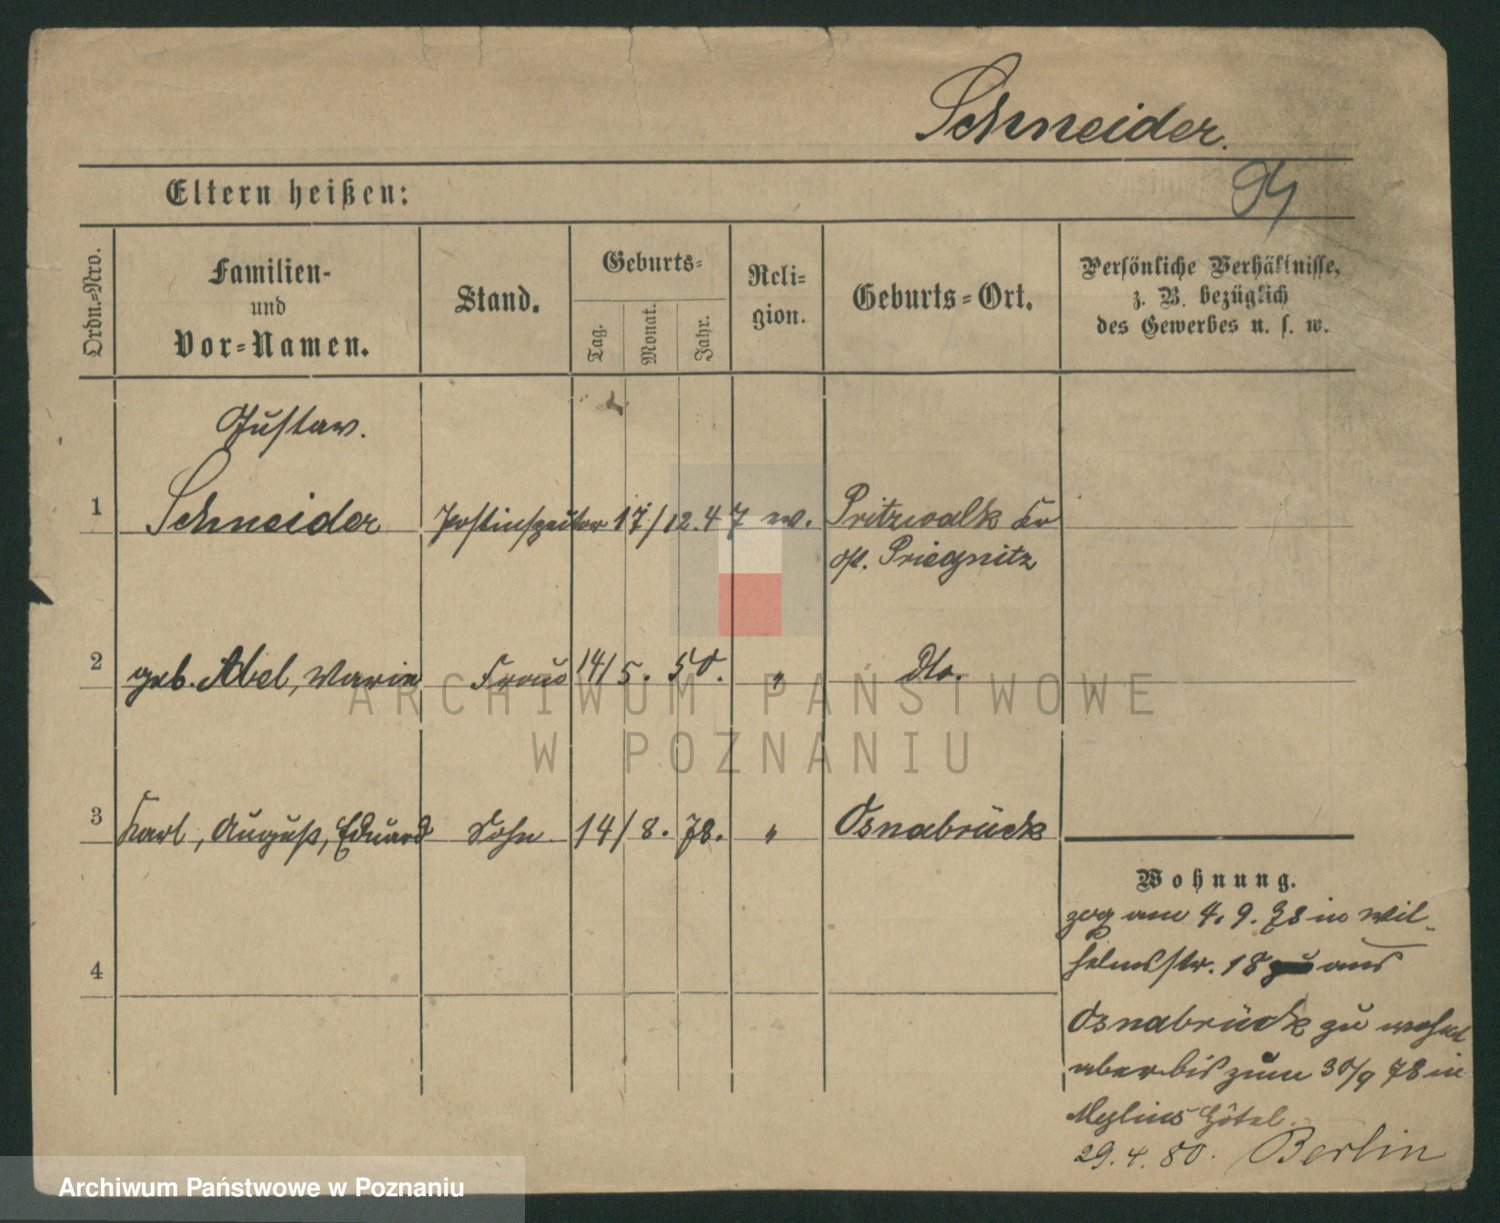 Schneider.
Eltern heißen:
Ordn.=Nro.
Familien-
und
Vor=Namen.
Stand.
Geburts=
Tag.
Monat.
Jahr.
Reli=
gion.
Geburts=Ort.
Persönliche Verhältnisse,
z. B. bezüglich
des Gewerbes u. s. w.
Gustav.
1 Schneider Postinspector 17/12.47 ev. Pritzwalk Kr
Ost. Priegnitz
2 geb. Abel, Marie Frau 14/5. 50. " Dto.
3 Karl, August, Eduard Sohn 14/8. 78. " Osnabrück
Wohnung.
zog am 4. 9. 78 in Wil-
helmsstr. 18 aus
Osnabrück zu wohnt
aber bis zum 30/9 78 in
Mylius Hôtel.
29. 4. 80. Berlin
4
ARCHIWUM PAŃSTWOWE
W POZNANIU
Archiwum Państwowe w Poznaniu